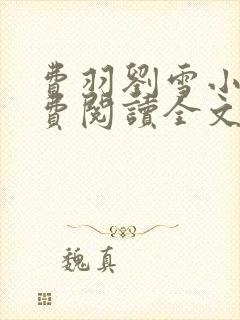 費羽劉雪小
費閱讀全文
魏真